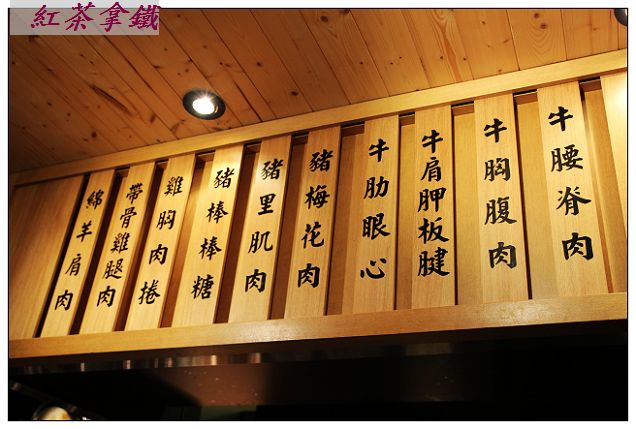 紅茶拿鐵
牛腰脊肉
牛胸腹肉
牛肩胛板腱
牛肋眼心
豬梅花肉
豬里肌肉
豬棒棒糖
雞胸肉捲
帶骨雞腿肉
綿羊肩肉